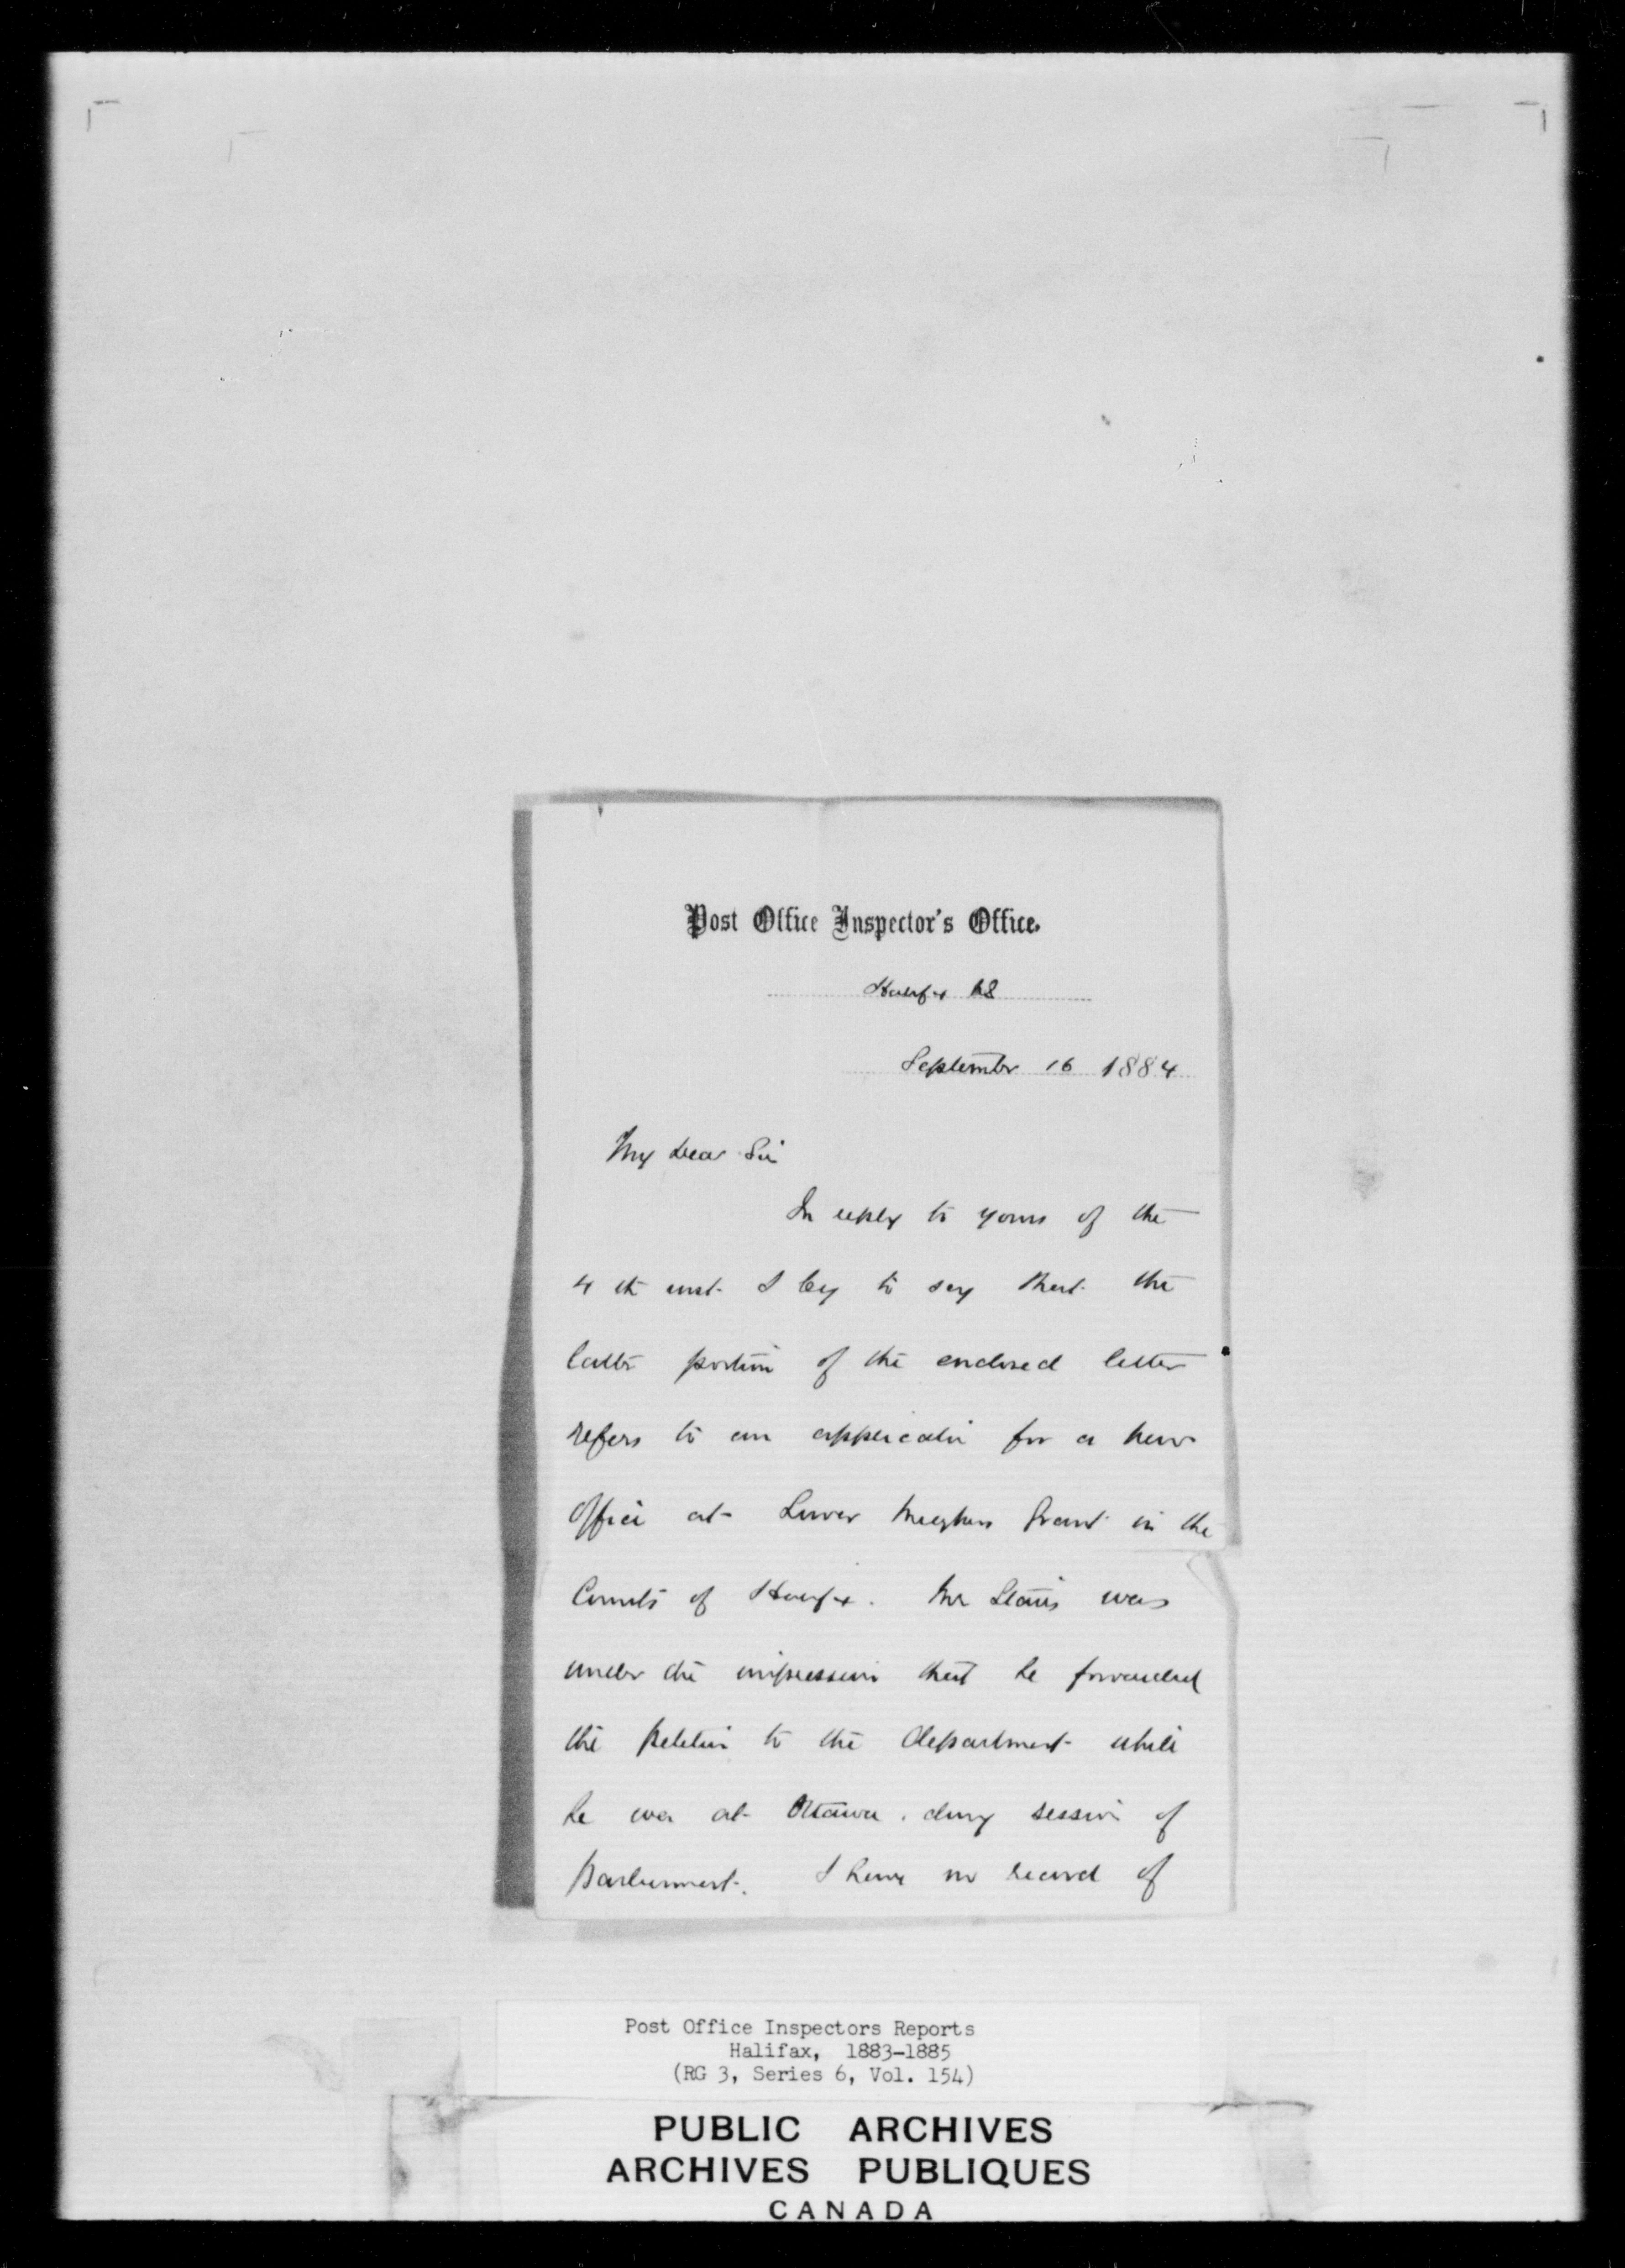 Post Office Inspector's Office.
Halifax NS
September 16 1884
My Dear Sir
In reply to yours of the
4th inst. I beg to say that the
latter portion of the enclosed letter
refers to an application for a new
Office at Lower Meaghers Grant in the
County of Halifax. Mr Stairs was
under the impression that he forwarded
the petition to the Department while
he was at Ottawa during session of
Parliament. I have no record of
Post Office Inspectors Reports
Halifax, 1883-1885
(RG 3, Series 6, Vol. 154)
PUBLIC ARCHIVES
ARCHIVES PUBLIQUES
CANADA